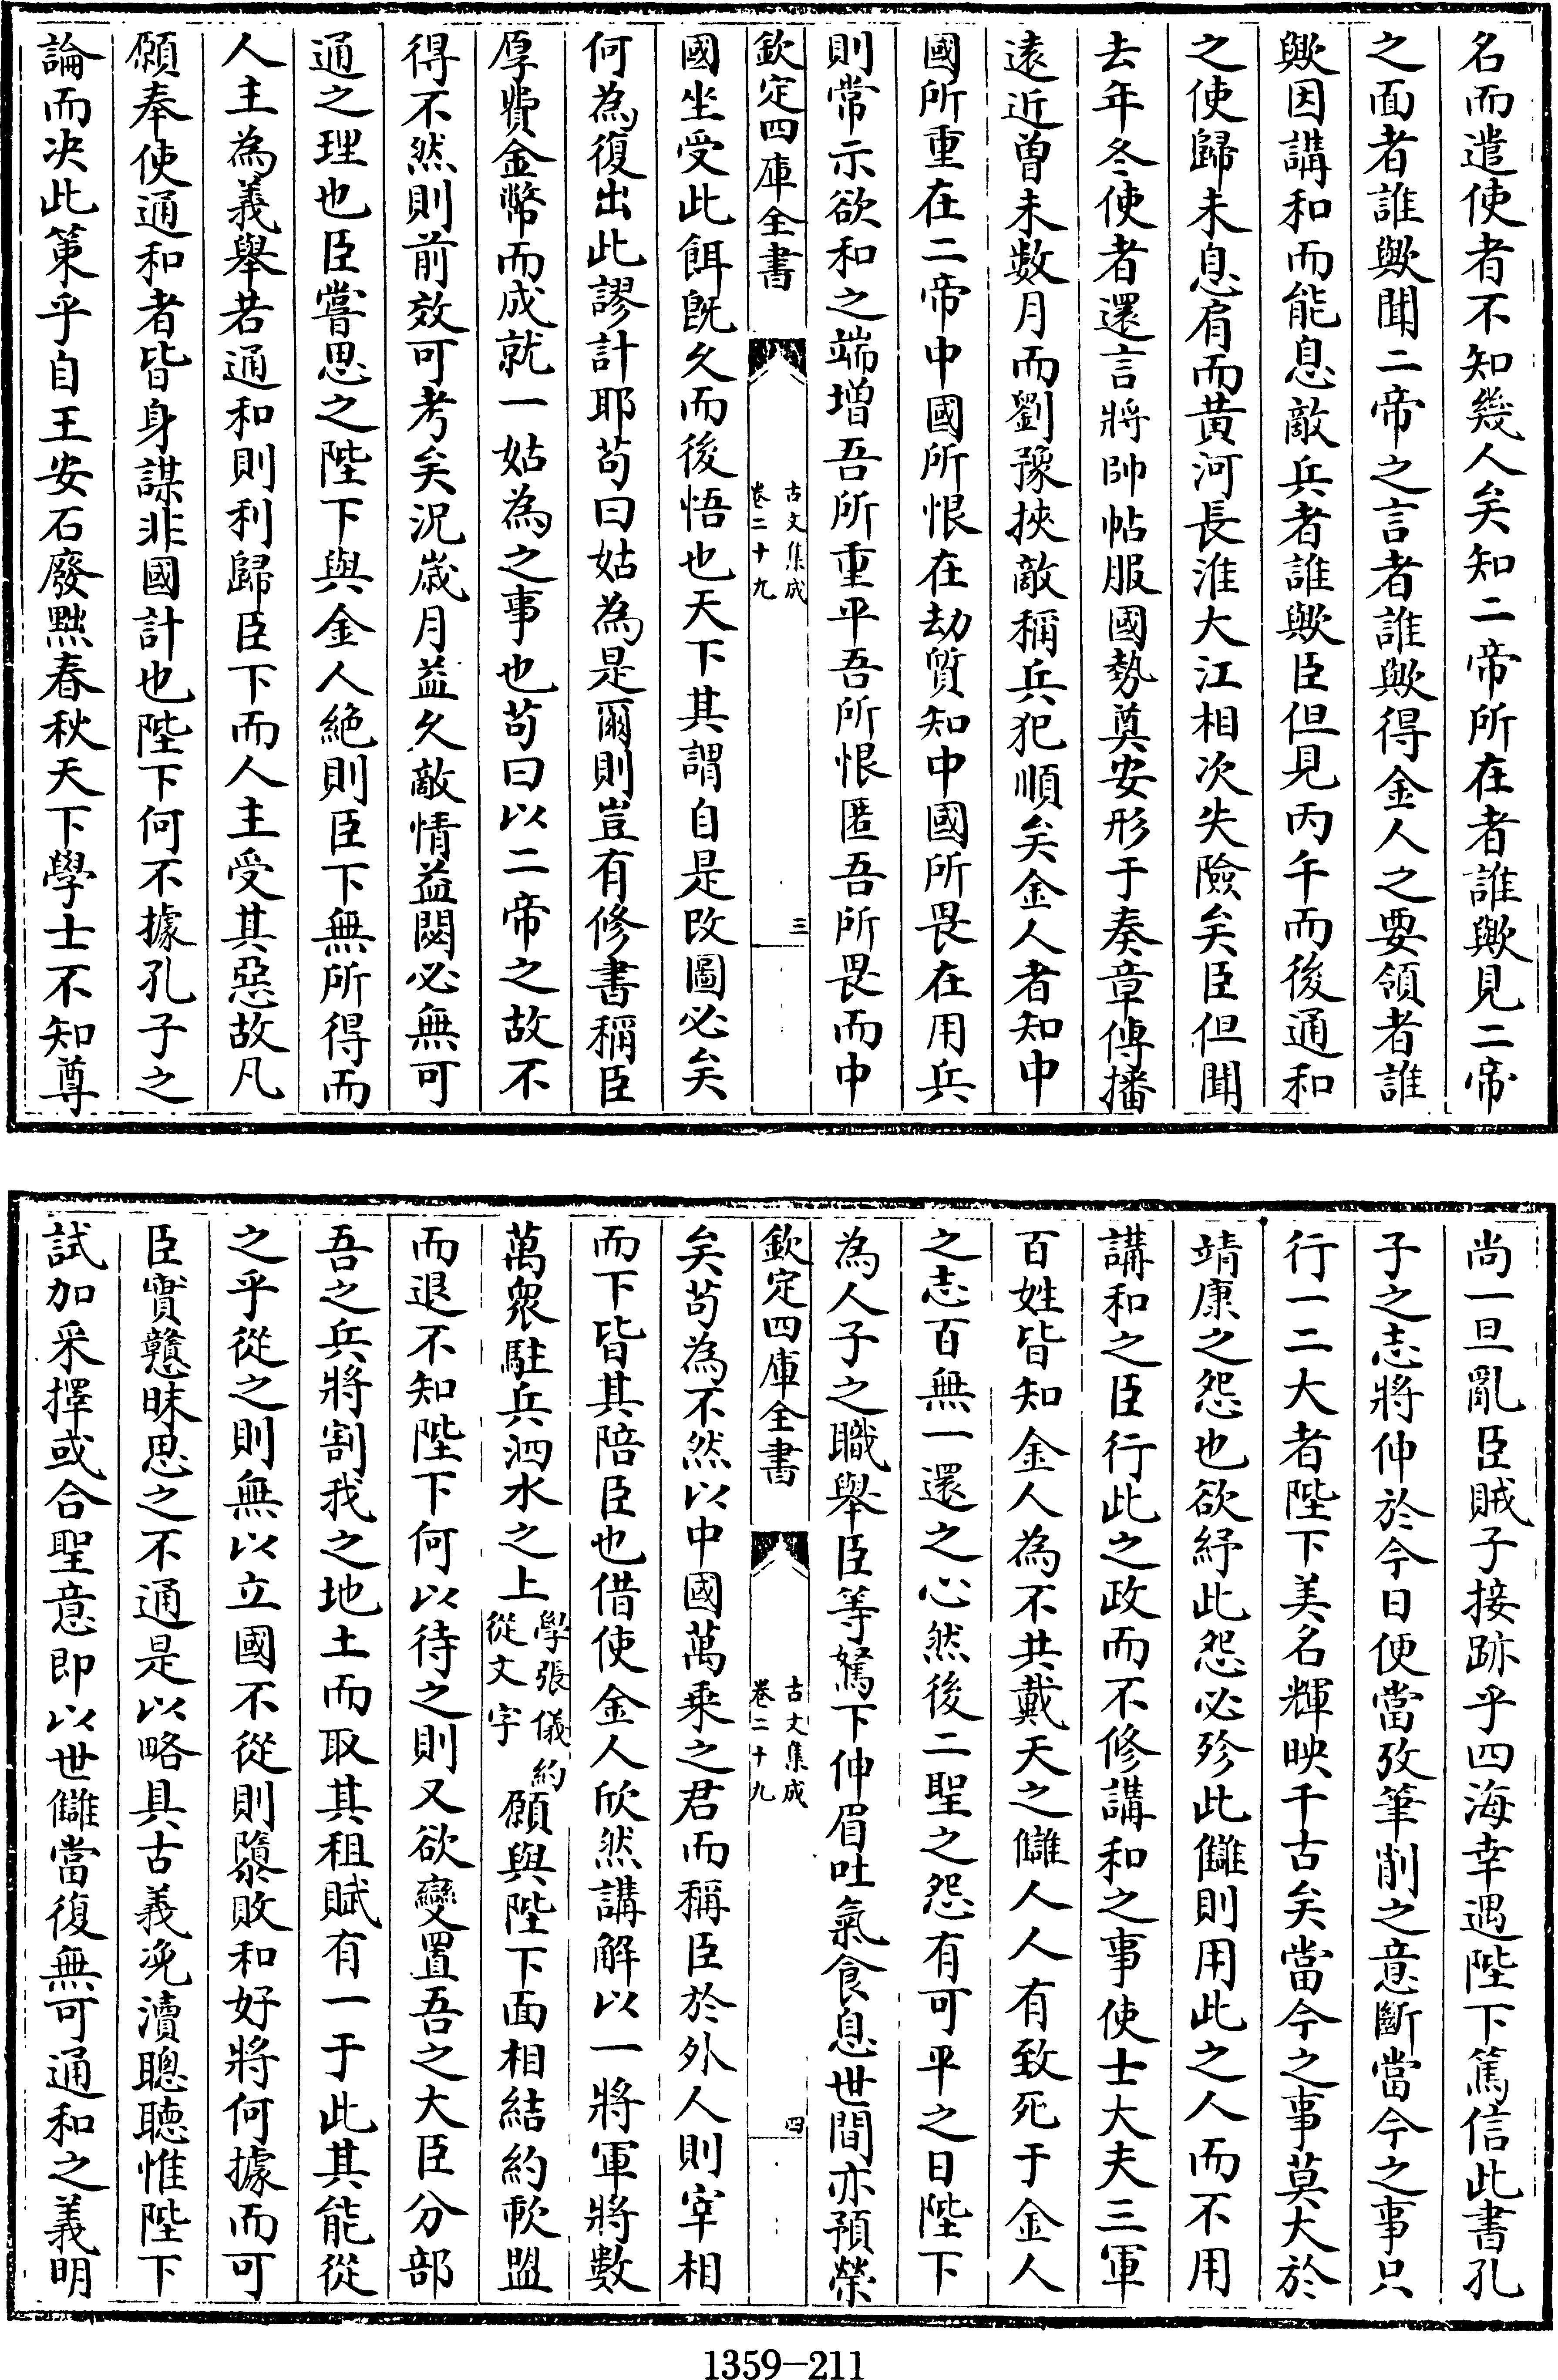 名而遣使者不知幾人矣知二帝所在者誰歟見二帝
之面者誰歟聞二帝之言者誰歟得金人之要領者誰
歟因講和而能息敵兵者誰歟臣但見丙午而後通和
之使歸未息肩而黃河長淮大江相次失險矣臣但聞
去年冬使者還言將帥帖服國勢奠安形于奏章傳播
遠近曽未數月而劉豫挾敵稱兵犯順矣金人者知中
國所重在二帝中國所恨在劫質知中國所畏在用兵
則常示欲和之端增吾所重平吾所恨匿吾所畏而中
欽定四庫全書
古文集成
卷二十九
三
國坐受此餌旣久而後悟也天下其謂自是改圖必矣
何為復出此謬計耶苟曰姑為是爾則豈有修書稱臣
厚費金幣而成就一姑為之事也苟曰以二帝之故不
得不然則前效可考矣況歳月益久敵情益閟必無可
通之理也臣嘗思之陛下與金人絶則臣下無所得而
人主為義舉若通和則利歸臣下而人主受其惡故凡
願奉使通和者皆身謀非國計也陛下何不據孔子之
論而决此策乎自王安石廢黜春秋天下學士不知尊
尚一旦亂臣賊子接跡乎四海幸遇陛下篤信此書孔
子之志將伸於今日便當攷筆削之意斷當今之事只
行一二大者陛下美名輝映千古矣當今之事莫大於
靖康之怨也欲紓此怨必殄此讎則用此之人而不用
講和之臣行此之政而不修講和之事使士大夫三軍
百姓皆知金人為不共戴天之讎人人有致死于金人
之志百無一還之心然後二聖之怨有可平之日陛下
為人子之職舉臣等駑下伸眉吐氣食息世間亦預榮
欽定四庫全書
古文集成
卷二十九
四
矣苟為不然以中國萬乘之君而稱臣於外人則宰相
而下皆其陪臣也借使金人欣然講解以一將軍將數
萬衆駐兵泗水之上學張儀約從文字願與陛下面相結約軟盟
而退不知陛下何以待之則又欲變置吾之大臣分部
吾之兵將割我之地土而取其租賦有一于此其能從
之乎從之則無以立國不從則隳敗和好將何據而可
臣實戇昧思之不通是以略具古義冼瀆聰聽惟陛下
試加采擇或合聖意即以世讎當復無可通和之義明
1359-211